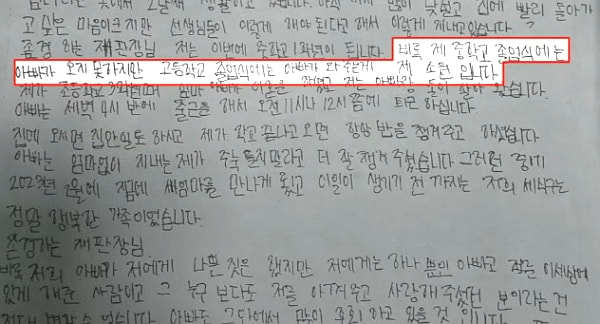 고 싶은 마음이 크지만 선생님들이 이렇게 해야 된다고 해서 이렇게 지내고 있습니다.
존경 하는 재판장님 저는 이번에 중학교 1학년이 됩니다 비록 제 중학교 졸업식에는
아빠가 오지 못하지만 고등학교 졸업식에는 아빠가 와 주는게 제 소원 입니다
제가 초등학교 3학년때 엄마 저는 아빠랑 살아 왔습니다
아빠는 새벽 4시 반에 출근을 해서 오전 11시나 12시 쯤에 퇴근 하십니다
집에 오시면 집안일도 하시고 제가 학교 끝나고 오면 항상 밥을 챙겨주고 하셨습니다
아빠는 엄마없이 지내는 제가 주눅 들지말라고 더 잘 챙겨 주셨습니다 그러던 중
2023년 2월에 지금에 새엄마를 만나게 됐고 이일이 생기기 전 까지는 저희 세식구는
정말 행복한 가족이었습니다.
존경하는 재판장님.
비록 저희 아빠가 저에게 나쁜 짓은 했지만 저에게는 하나 뿐인 아빠고 저를 이세상에
있게 해준 사람이고 그 누구 보다도 저를 아껴주고 사랑해 주셨던 분이라는건